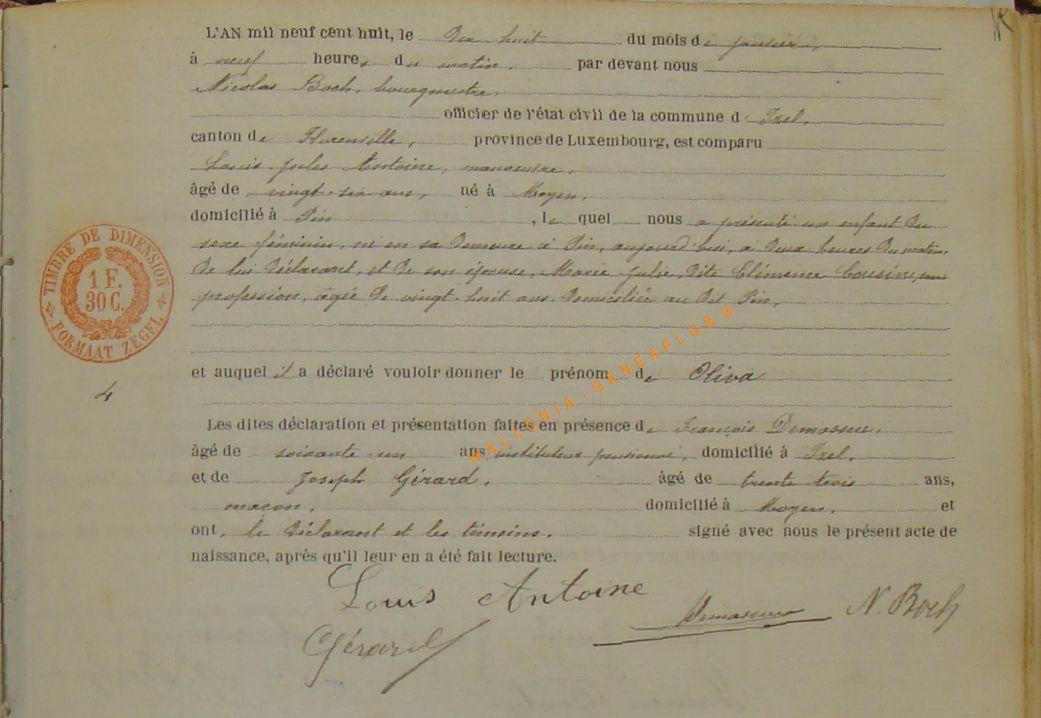 L'AN mil neuf cent huit, le Dix huit du mois de janvier,
à neuf heures du matin, par devant nous
Nicolas Boch, bourgmestre,
officier de l'état civil de la commune d'Izel,
canton de Florenville, province de Luxembourg, est comparu
Louis Jules Antoine, manœuvre,
âgé de vingt-six ans, né à Moyen,
domicilié à Pin, le quel nous a présenté un enfant du
sexe féminin, né en sa demeure à Pin, aujourd'hui, à deux heures du matin,
de lui déclarant, et de son épouse, Marie Julie, dite Clémence Cousin, sans
profession, agée de vingt-huit ans domiciliée au dit Pin,
et auquel il a déclaré vouloir donner le prénom de Oliva
Les dites déclaration et présentation faites en présence de François Demasseu
âgé de soixante un ans instituteur pensionné, domicilié à Izel,
et de Joseph Gérard, âgé de trente trois ans,
maçon, domicilié à Moyen, et
ont, le déclarant et les témoins, signé avec nous le présent acte de
naissance, après qu'il leur en a été fait lecture.
Louis Antoine
Demasseu
N. Boch
Gérard
4
TIMBRE DE DIMENSION
1 F.
30 C.
FORMAAT ZEGEL
WALLONIA-GENEAFLOR©